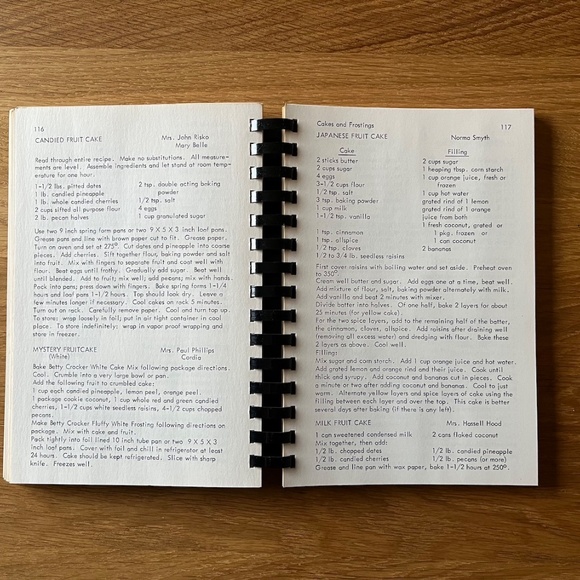 116
CANDIED FRUIT CAKE
Mrs. John Risko
Mary Belle
Read through entire recipe. Make no substitutions. All measure-
ments are level. Assemble ingredients and let stand at room temp-
erature for one hour.
1-1/2 lbs. pitted dates
1 lb. candied pineapple
1 lb. whole candied cherries
2 cups sifted all purpose flour
2 lb. pecan halves
2 tsp. double acting baking
powder
1/2 tsp. salt
4 eggs
1 cup granulated sugar
Use two 9 inch spring form pans or two 9 X 5 X 3 inch loaf pans.
Grease pans and line with brown paper cut to fit. Grease paper.
Turn on oven and set at 275°. Cut dates and pineapple into coarse
pieces. Add cherries. Sift together flour, baking powder and salt
into fruit. Mix with fingers to separate fruit and coat well with
flour. Beat eggs until frothy. Gradually add sugar. Beat well
until blended. Add to fruit; mix well; add pecans; mix with hands.
Pack into pans; press down with fingers. Bake spring forms 1-1/4
hours and loaf pans 1-1/2 hours. Top should look dry. Leave a
few minutes longer if necessary. Cool cakes on rack 5 minutes.
Turn out on rack. Carefully remove paper. Cool and turn top up.
To store: wrap loosely in foil; put in air tight container in cool
place. To store indefinitely: wrap in vapor proof wrapping and
store in freezer.
MYSTERY FRUITCAKE
(White)
Mrs. Paul Phillips
Cordia
Bake Betty Crocker White Cake Mix following package directions.
Cool. Crumble into a very large bowl or pan.
Add the following fruit to crumbled cake:
1 cup each candied pineapple, lemon peel, orange peel.
1 package cookie coconut, 1 cup whole red and green candied
cherries, 1-1/2 cups white seedless raisins, 4-1/2 cups chopped
pecans.
Make Betty Crocker Fluffy White Frosting following directions on
package. Mix with cake and fruit.
Pack tightly into foil lined 10 inch tube pan or two 9 X 5 X 3
inch loaf pans. Cover with foil and chill in refrigerator at least
24 hours. Cake should be kept refrigerated. Slice with sharp
knife. Freezes well.
Cakes and Frostings
117
JAPANESE FRUIT CAKE
Norma Smyth
Cake
2 sticks butter
2 cups sugar
4 eggs
3-1/2 cups flour
1/2 tsp. salt
3 tsp. baking powder
1 cup milk
1-1/2 tsp. vanilla
1 tsp. cinnamon
1 tsp. allspice
1/2 tsp. cloves
1/2 to 3/4 lb. seedless raisins
Filling
2 cups sugar
1 heaping tbsp. corn starch
1 cup orange juice, fresh or
frozen
1 cup hot water
grated rind of 1 lemon
grated rind of 1 orange
juice from both
1 fresh coconut, grated or
1 pkg. frozen or
1 can coconut
2 bananas
First cover raisins with boiling water and set aside. Preheat oven
to 350°.
Cream well butter and sugar. Add eggs one at a time, beat well.
Add mixture of flour, salt, baking powder alternately with milk.
Add vanilla and beat 2 minutes with mixer.
Divide batter into halves. Of one half, bake 2 layers for about
25 minutes (for yellow cake).
For the two spice layers, add to the remaining half of the batter,
the cinnamon, cloves, allspice. Add raisins after draining well
(removing all excess water) and dredging with flour. Bake these
2 layers as above. Cool well.
Filling:
Mix sugar and corn starch. Add 1 cup orange juice and hot water.
Add grated lemon and orange rind and their juice. Cook until
thick and syrupy. Add coconut and bananas cut in pieces. Cook
a minute or two after adding coconut and bananas. Cool to just
warm. Alternate yellow layers and spice layers of cake using the
filling between each layer and over the top. This cake is better
several days after baking (if there is any left).
MILK FRUIT CAKE
Mrs. Hassell Hood
1 can sweetened condensed milk
Mix together, then add:
1/2 lb. chopped dates
1/2 lb. candied cherries
2 cans flaked coconut
1/2 lb. candied pineapple
1/2 lb. pecans (or more)
Grease and line pan with wax paper, bake 1-1/2 hours at 250°.